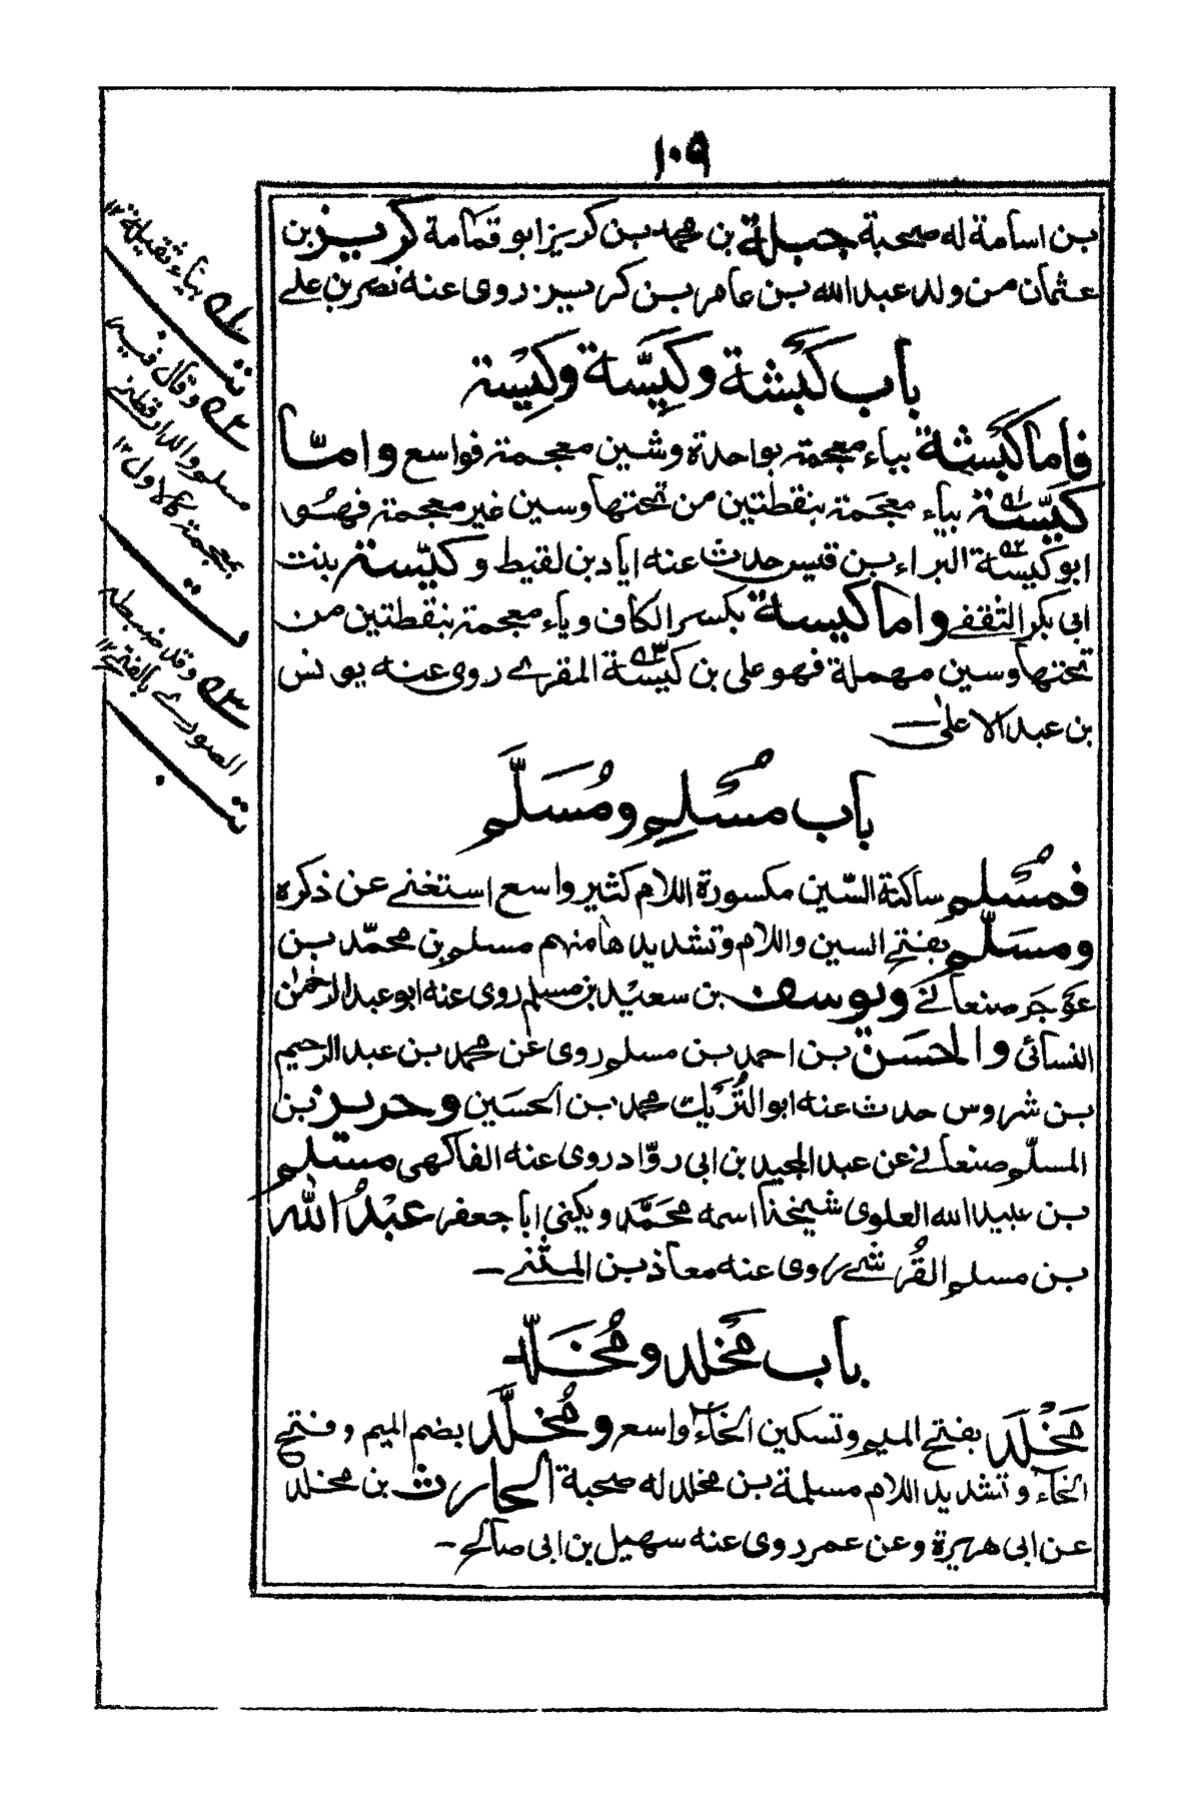 ١٠٩
بن اسامة له صحبة جبلة بن محمد بن كريز ابو قمامة كريز بن
عثمان من ولد عبد الله بن عامر بن كريز. روى عنه نصر بن علے
باب كَبْشة وكَيِّسَة وكَيِسة
فاما كَبْشة بباء معجمة بواحدة وشين معجمة فواسع وامّا
كَيّسة بياء معجمة بنقطتين من تحتها وسين غير معجمة فهو
ابو كيّسة البراء بن قيس حدث عنه اياد بن لقيط وكيّسة بنت
ابى بكر الثقفے واما كيسة بكسر الكاف وياء معجمة بنقطتين من
تحتها وسين مهملة فهو على بن كيّسة المقرے روى عنه يونس
بن عبد الاعلى
باب مُسْلِم ومُسَلَّم
فمُسْلم ساكنة السّين مكسورة اللام كثير واسع استغنے عن ذكره
ومسَلّم بفتح السين واللام وتشديدها منهم مسلم بن محمّد بن
صنعانے ويوسف بن سعيد بن مسلم روى عنه ابو عبد الرحمن
النسائى والحسن بن احمد بن مسلم روى عن محمد بن عبد الرحيم
بن شروس حدث عنه ابو محمد بن الحسين وحريز بن
المسلّم صنعانے عن عبد المجيد بن ابى روّاد روى عنه الفاكهى مسلم
بن عبيد الله العلوى شيخنا اسمه محمَّد ويكنى ابا جعفر عبْدُ الله
بن مسلم القُرشے روى عنه معاذ بن المثنے
باب مَخْلد ومُخَلّد
مَخْلَد بفتح الميم وتسكين الخاء واسع ومُخلَّد بضم الميم وفتح
الخاء وتشديد اللام مسلمة بن مخلد له صحبة الحارث بن مخلد
عن ابى هريرة وعن عمر روى عنه سهيل بن ابى صالح
ن١ بياء ثقيلة ١٢
ن٢ وقال فيه
مسلم والدارقطنے
بمعجمة كالاول ١٢
ن٣ وقد ضبطه
الصورے بالفتح ١٢